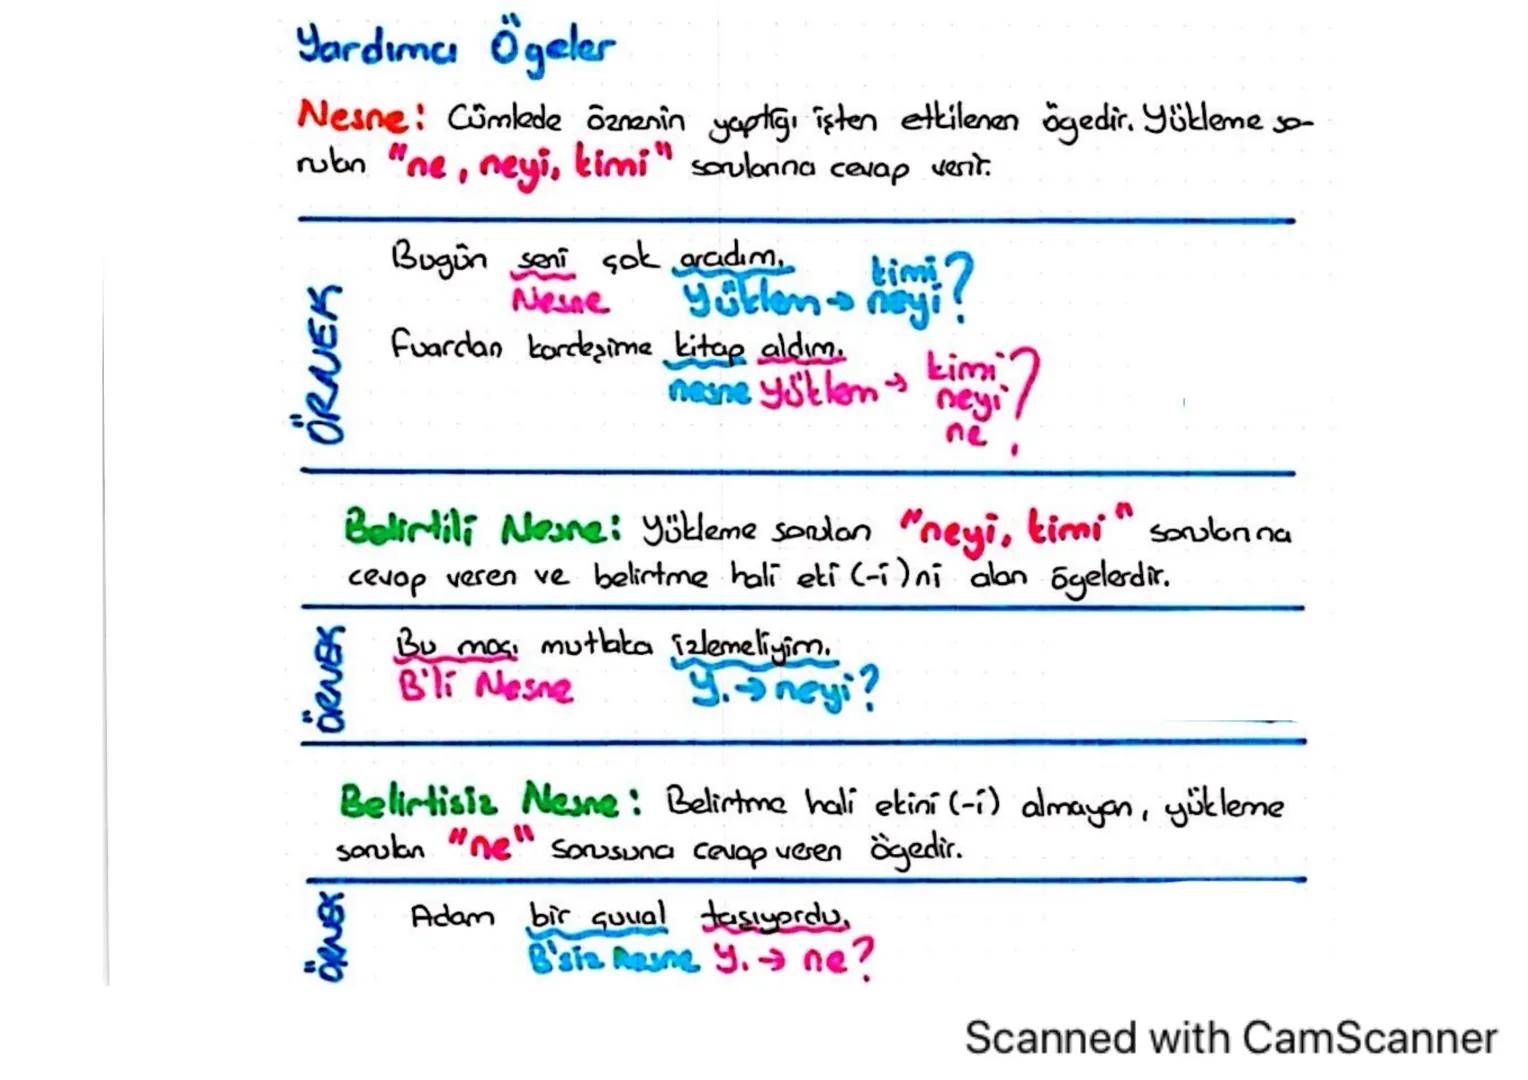 Yardımcı Ögeler
Nesne: Cümlede öznenin yaptığı işten etkilenen ögedir. Yükleme so-
rulan "ne, neyi, kimi" sorularına cevap verir.
ÖRNEK
Bugün seni çok aradım.
Nesne Yüklem → kimi neyi?
Fuardan kardeşime kitap aldım.
nesne yüklem → kimi neyi ne?
Belirtili Nesne: Yükleme sorulan "neyi, kimi" sorularına
cevap veren ve belirtme hali eki (-i)ni alan ögelerdir.
ÖRNEK
Bu maçı mutlaka izlemeliyim.
B'li Nesne Y. → neyi?
Belirtisiz Nesne: Belirtme hali ekini (-i) almayan, yükleme
sorulan "ne" sorusuna cevap veren ögedir.
ÖRNEK
Adam bir çuval taşıyordu.
B'siz Nesne Y. → ne?
Scanned with CamScanner